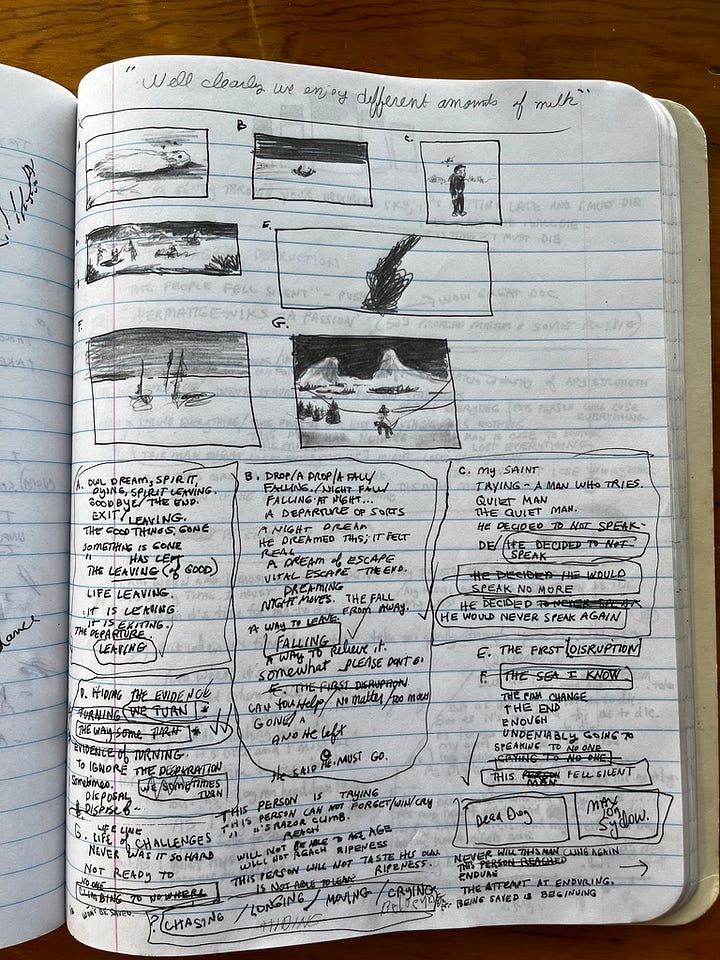 "Well clearly we enjoy different amounts of milk"
B
C.
E.
F.
G.
A. OWL DREAM, SPIRIT,
DYING, SPIRIT LEAVING.
GOODBYE/ THE END.
EXIT/ LEAVING.
THE GOOD THING IS, GONE
SOMETHING IS GONE
" HAS LEFT
THE LEAVING (of GOOD)
LIFE LEAVING.
IT IS LEAVING
IT IS EXITING.
THE DEPARTURE.
LEAVING
B. DROP/A DROP/A FALL/
FALLING./NIGHT FALL/
FALLING AT NIGHT...
A DEPARTURE OF SORTS
A NIGHT DREAM
HE DREAMED THIS; IT FELT
REAL
A DREAM of ESCAPE
VITAL ESCAPE - THE END.
DREAMING
NIGHT MOVES. THE FALL
FROM AWAY.
A WAY TO LEAVE.
FALLING
A WAY TO RELIEVE IT.
SOMEWHAT PLEASE DON'T GO
E. THE FIRST DISRUPTION
CAN YOU HELP/ NO MATTER/ TOO MUCH
GOING
AND HE LEFT
HE SAID HE MUST GO.
C. MY SAINT
TRYING - A MAN WHO TRIES.
QUIET MAN
THE QUIET MAN.
HE DECIDED TO NOT SPEAK -
DE/ HE DECIDED TO NOT
SPEAK
HE DECIDED HE WOULD
SPEAK NO MORE
HE DECIDED TO NEVER SPEAK
HE WOULD NEVER SPEAK AGAIN
D. HIDING THE EVIDENCE
TURNING WE TURN
THE WAY SOME TURN
EVIDENCE OF TURNING.
TO IGNORE THE DEPARATION
Sometimes. WE SOMETIMES
TURN
DISPOSAL
DISPOSE of
E. THE FIRST DISRUPTION
F. THE SEA I KNOW
THE END
ENOUGH
UNDENIABLY GOING TO
SPEAKING TO NO ONE
CRYING TO NO ONE
THIS PERSON FELL SILENT
MAN
Dead Dog
MAX
VON
Sydow.
LIFE LINE
G. LIFE OF CHALLENGES
NEVER WAS IT SO HARD
NOT READY TO
NO ONE
CLIMBING TO NO WHERE
WON'T BE SAVED.
THIS PERSON IS TRYING
THIS PERSON CAN NOT FORGET/WIN/CRY
" "'S RAZOR CLIMB.
REACH
WILL NOT BE ABLE TO AGE
WILL NOT REACH RIPENESS
THIS PERSON WILL NOT TASTE HIS OWN
RIPENESS.
IS NOT ABLE TO LEAVE
? CHASING / LONGING / MOVING / CRYING
HIDING
NEVER WILL THIS MAN CLING AGAIN
THIS PERSON REACHED
ENDURE
THE ATTEMPT AT ENDURING.
BEING SAVED IS BEGINNING